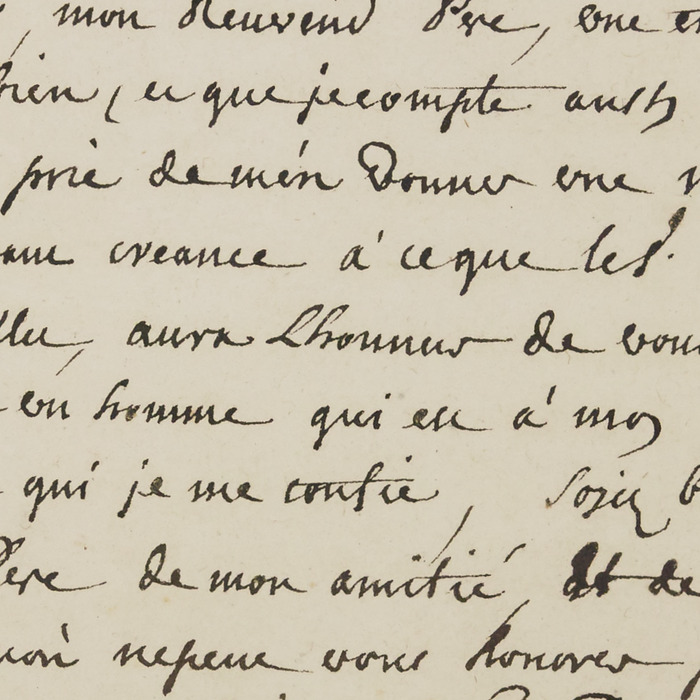 , mon Reuerend Pere, vne en
bien, et que je compte aussy
prié de m'en Donner vne
ant creance a' ce que le Sr.
llu, aura Lhonneur de vous
vn homme qui est a' moy
qui je me confie, soiez b
Pere de mon amitié, Et de
uon nepeut vous honorer